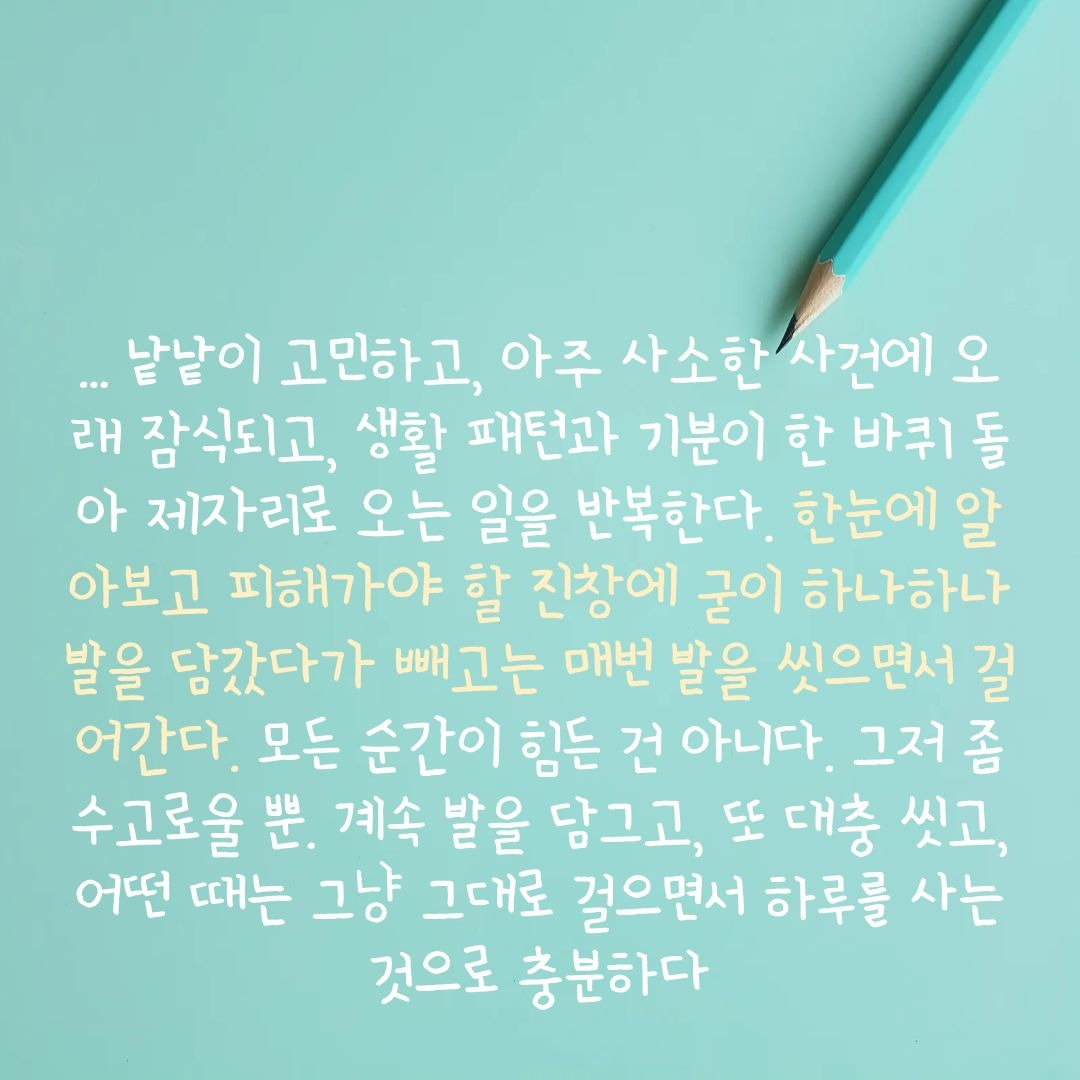 ... 낱낱이 고민하고, 아주 사소한 사건에 오
래 잠식되고, 생활 패턴과 기분이 한 바퀴 돌
아 제자리로 오는 일을 반복한다. 한눈에 알
아보고 피해가야 할 진창에 굳이 하나하나
발을 담갔다가 빼고는 매번 발을 씻으면서 걸
어간다. 모든 순간이 힘든 건 아니다. 그저 좀
수고로울 뿐. 계속 발을 담그고, 또 대충 씻고,
어떤 때는 그냥 그대로 걸으면서 하루를 사는
것으로 충분하다